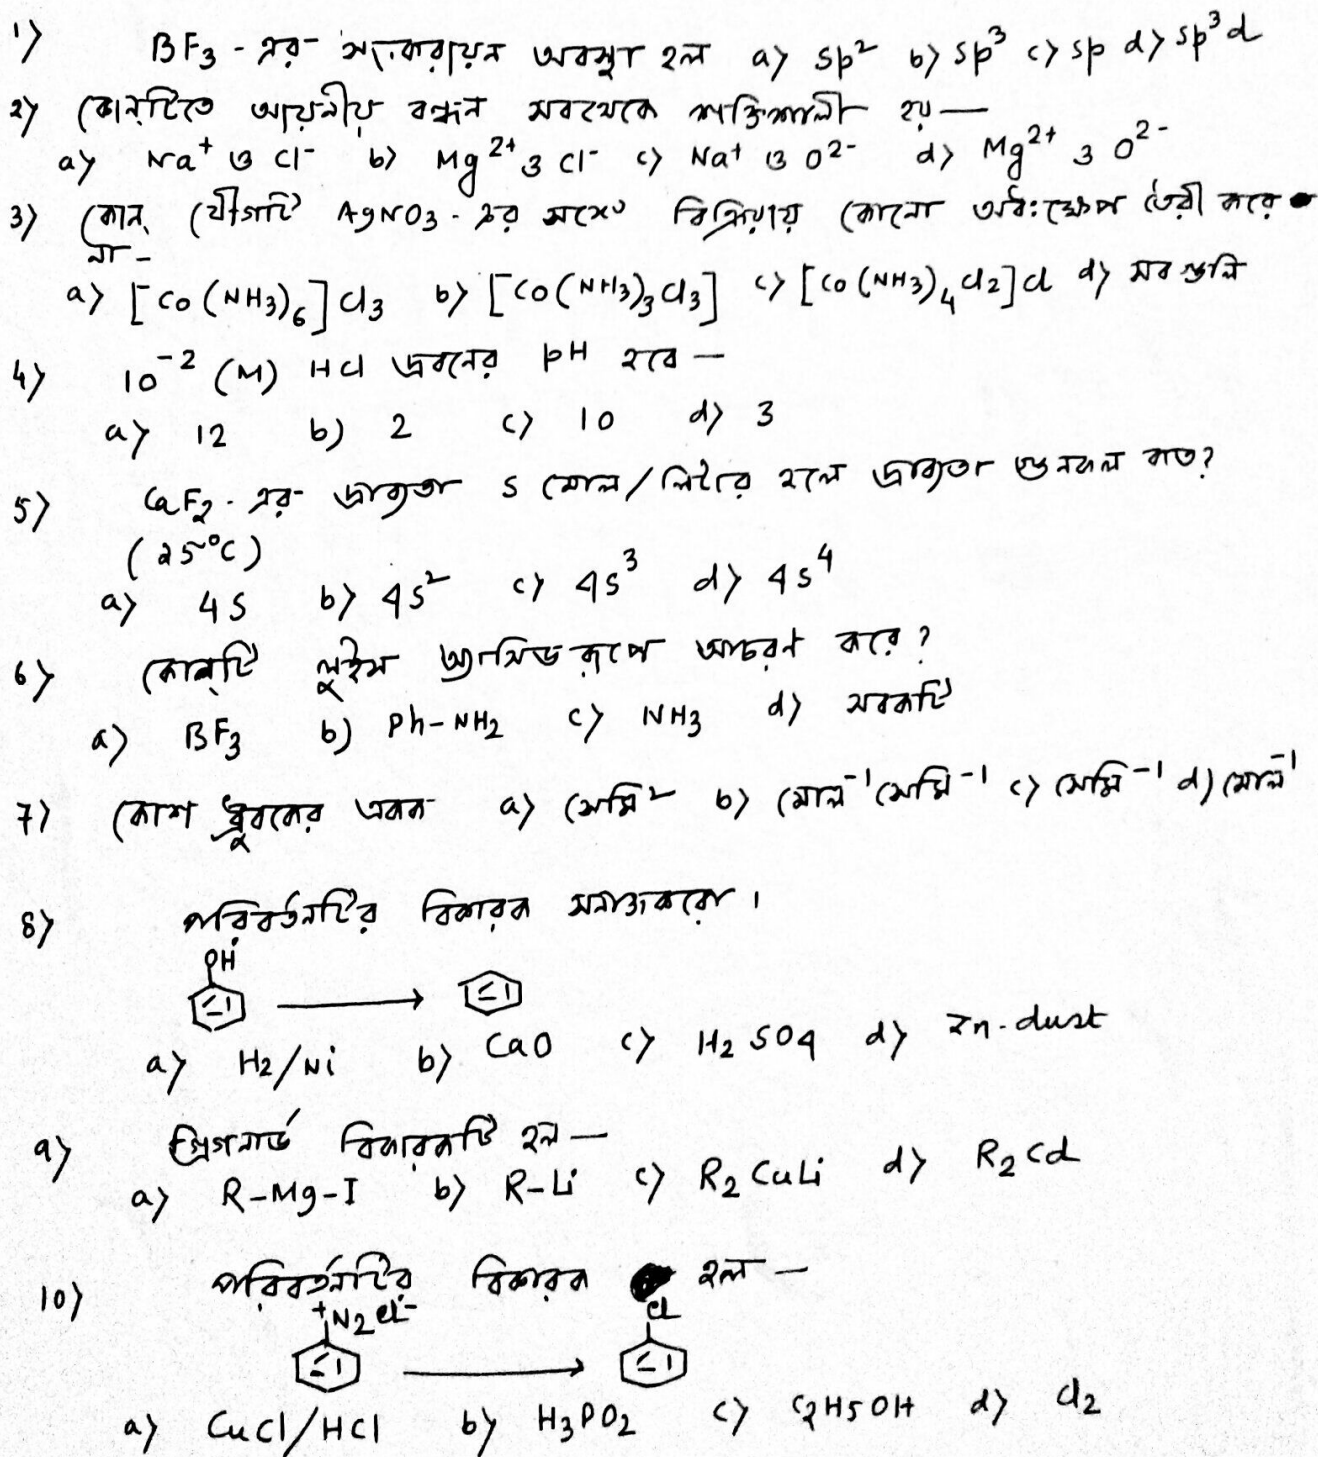 ১) BF3 - এর সংকরায়ন অবস্থা হল a) sp² b) sp³ c) sp d) sp³d
২) কোনটিতে আয়নীয় বন্ধন সবথেকে শক্তিশালী হয় —
a) Na⁺ ও Cl⁻ b) Mg²⁺ ও Cl⁻ c) Na⁺ ও O²⁻ d) Mg²⁺ ও O²⁻
3) কোন্ যৌগটি AgNO3 - এর সঙ্গে বিক্রিয়ায় কোনো অধঃক্ষেপ তৈরী করে
না -
a) [Co(NH3)6]Cl3 b) [Co(NH3)3Cl3] c) [Co(NH3)4Cl2]Cl d) সবগুলি
4) 10⁻² (M) HCl দ্রবনের pH হবে —
a) 12 b) 2 c) 10 d) 3
5) CaF2 - এর দ্রাব্যতা S মোল/লিটার হলে দ্রাব্যতা গুনফল কত?
(25°C)
a) 4S b) 4S² c) 4S³ d) 4S⁴
6) কোনটি লুইস অ্যাসিড রূপে আচরণ করে?
a) BF3 b) Ph-NH2 c) NH3 d) সবকটি
7) কোশ ধ্রুবকের একক a) সেমি² b) মোল⁻¹ সেমি⁻¹ c) সেমি⁻¹ d) মোল⁻¹
8) পরিবর্তনটির বিকারক সনাক্তকরো।
OH
a) H2/Ni b) CaO c) H2SO4 d) Zn-dust
9) গ্রিগনার্ড বিকারকটি হল —
a) R-Mg-I b) R-Li c) R2CuLi d) R2Cd
10) পরিবর্তনটির বিকারক হল —
⁺N2Cl⁻ Cl
a) CuCl/HCl b) H3PO2 c) C2H5OH d) Cl2